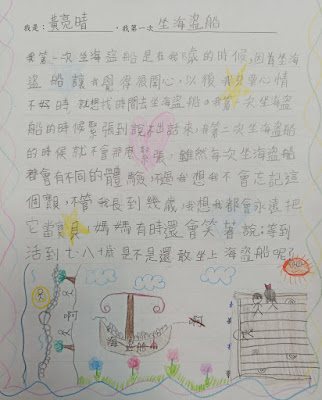 我是：黃亮晴，我第一次 坐海盜船
我第一次坐海盜船是在我 歲的時候，因為坐海
盜船讓我覺得很開心，以後我只要心情
不好時就想找時間去坐海盜船。我第一次坐海盜
船的時候緊張到說不出話來，我第二次坐海盜船
的時候就不會那麼緊張，雖然每次坐海盜船
都會有不同的體驗，不過我想我不會忘記這
個願，不管我長到幾歲，我想我都會永遠把
它當 ，媽媽有時還會笑著說：等到
活到七八十歲是不是還敢坐上海盜船呢？
海盜船